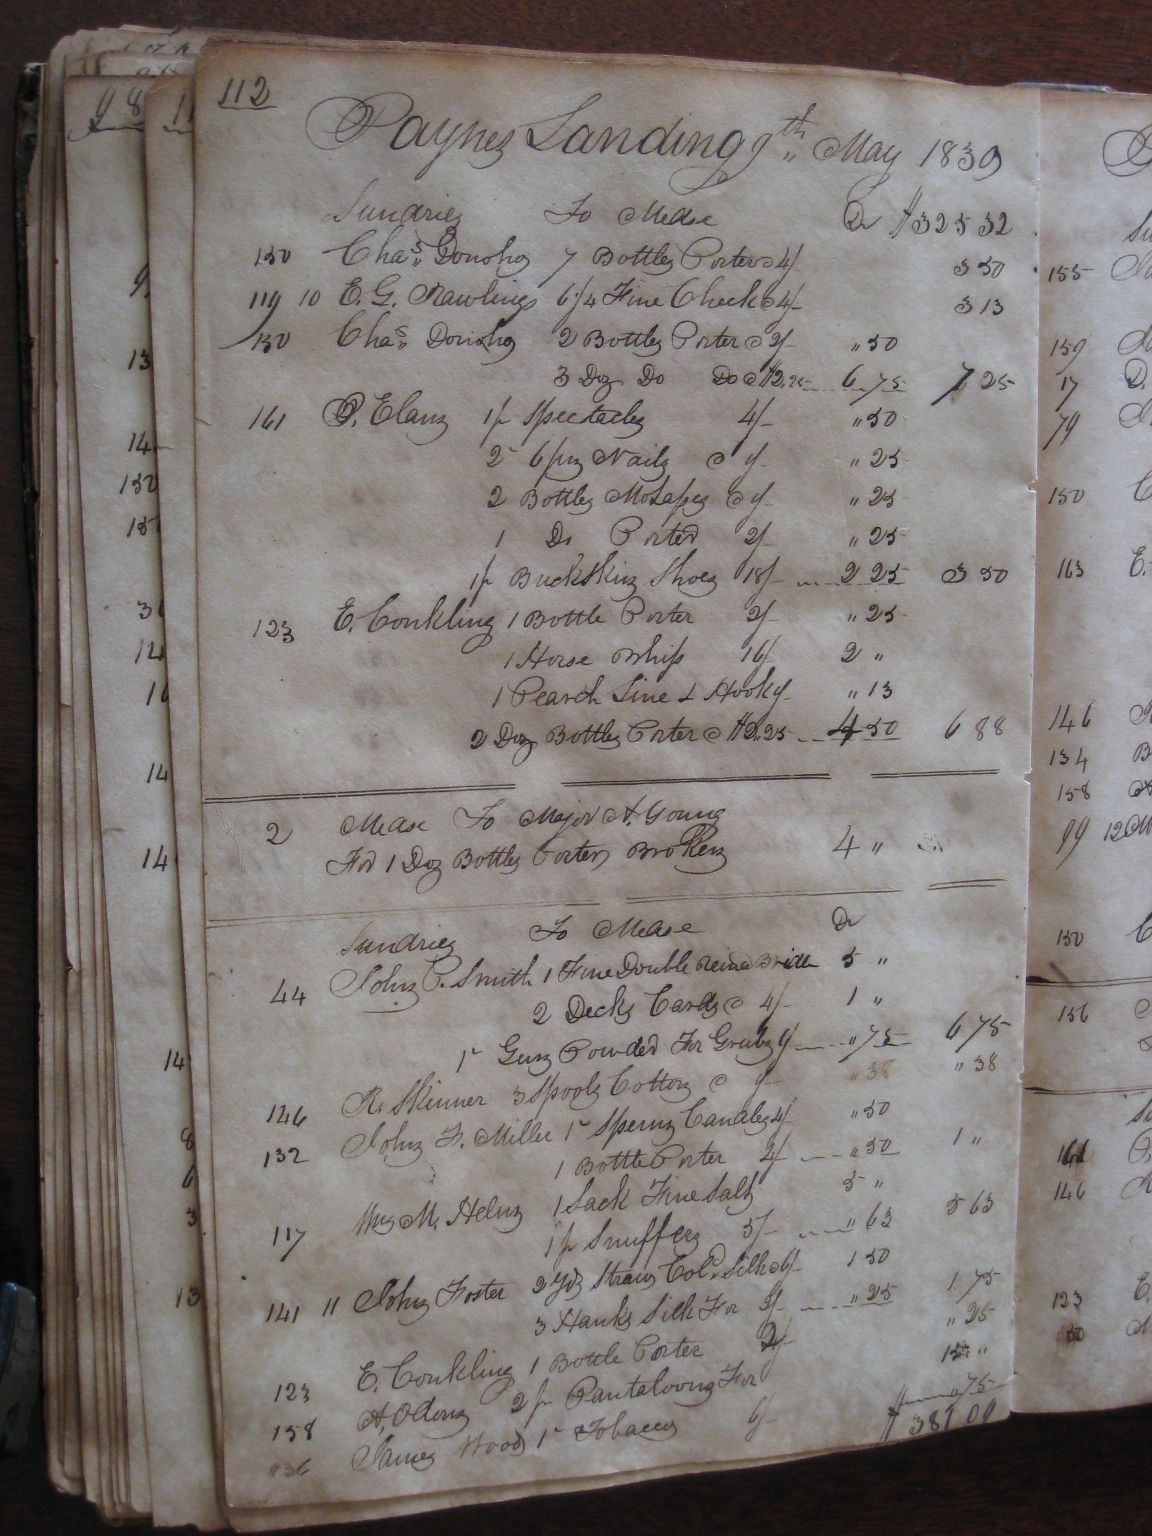 112
Paynes Landing 9th May 1839
Sundries To Mdse Dr $325 32
150 Chas Donoho 7 Bottles Porter @ 4/ 3 50
119 10 E. G. Rawlings 6/4 Fine Check @ 4/ 3 13
150 Chas Donoho 2 Bottles Porter @ 2/ " 50
3 Doz Do Do @ $2.25 6 75 7 25
161 P. Elanz 1 pr Spectacles 4/ " 50
2 6pny Nails @ 1/ " 25
2 Bottles Molasses @ 1/ " 25
1 Do Porter 2/ " 25
1 pr Buckskin Shoes 18/ 2 25 3 50
123 E. Conkling 1 Bottle Porter 2/ " 25
1 Horse Whip 16/ 2 "
1 Pearch Line & Hook 1/ " 13
2 Doz Bottles Porter @ $2.25 4 50 6 88
2 Mdse To Major A. Young
For 1 Doz Bottles Porter Broken 4 "
Sundries To Mdse Dr
44 John P. Smith 1 Fine Double Reined Bridle 5 "
2 Decks Cards @ 4/ 1 "
Gun Powder For Grubs 6/ " 75 6 75
146 R. Skinner 3 Spools Cotton @ 1/ " 38 " 38
132 John F. Miller Sperm Candles 4/ " 50
1 Bottle Porter 4/ " 50 1 "
117 Wm M. Helm 1 Sack Fine Salt 5 "
1 pr Snuffers 5/ " 63 5 63
141 11 John Foster 2 Yds Straw Cold Silk @ 6/ 1 50
3 Hanks Silk For 2/ " 25 1 75
123 E. Conkling 1 Bottle Porter 2/ " 25
158 A. Odom 2 pr Pantaloons For 15 "
James Wood Tobacco 6/ " 75
$ 381 09
98
11
9
13
14
150
15
3
14
1
14
14
14
8
6
3
13
155
159
17
79
150
163
146
134
158
99 12
150
156
161
146
123